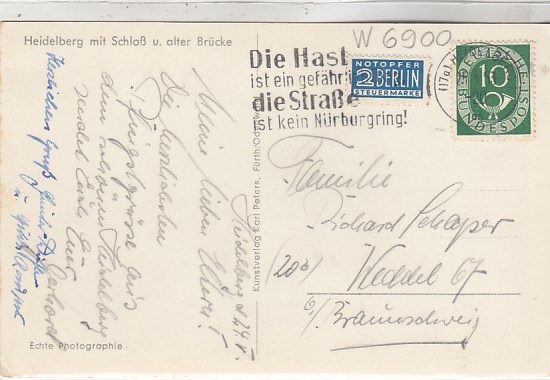 W 6900
Heidelberg mit Schloß u. alter Brücke
Die Hast
ist ein gefährli
die Straße
ist kein Nürburgring!
NOTOPFER
2 BERLIN
STEUERMARKE
(17a)
DEUTSCHE
10
BUNDESPOST
Heidelberg, d. 24. V.
Meine lieben Eltern!
Die herzlichsten
Pfingstgrüße aus
dem schönen Heidelberg
sendet Euch Euer
Gerhard
Herzlichen Gruß
Kunstverlag Karl Peters, Fürth/Od
Familie
Richard Schaper
(20b) Weddel 67
b/ Braunschweig
Echte Photographie